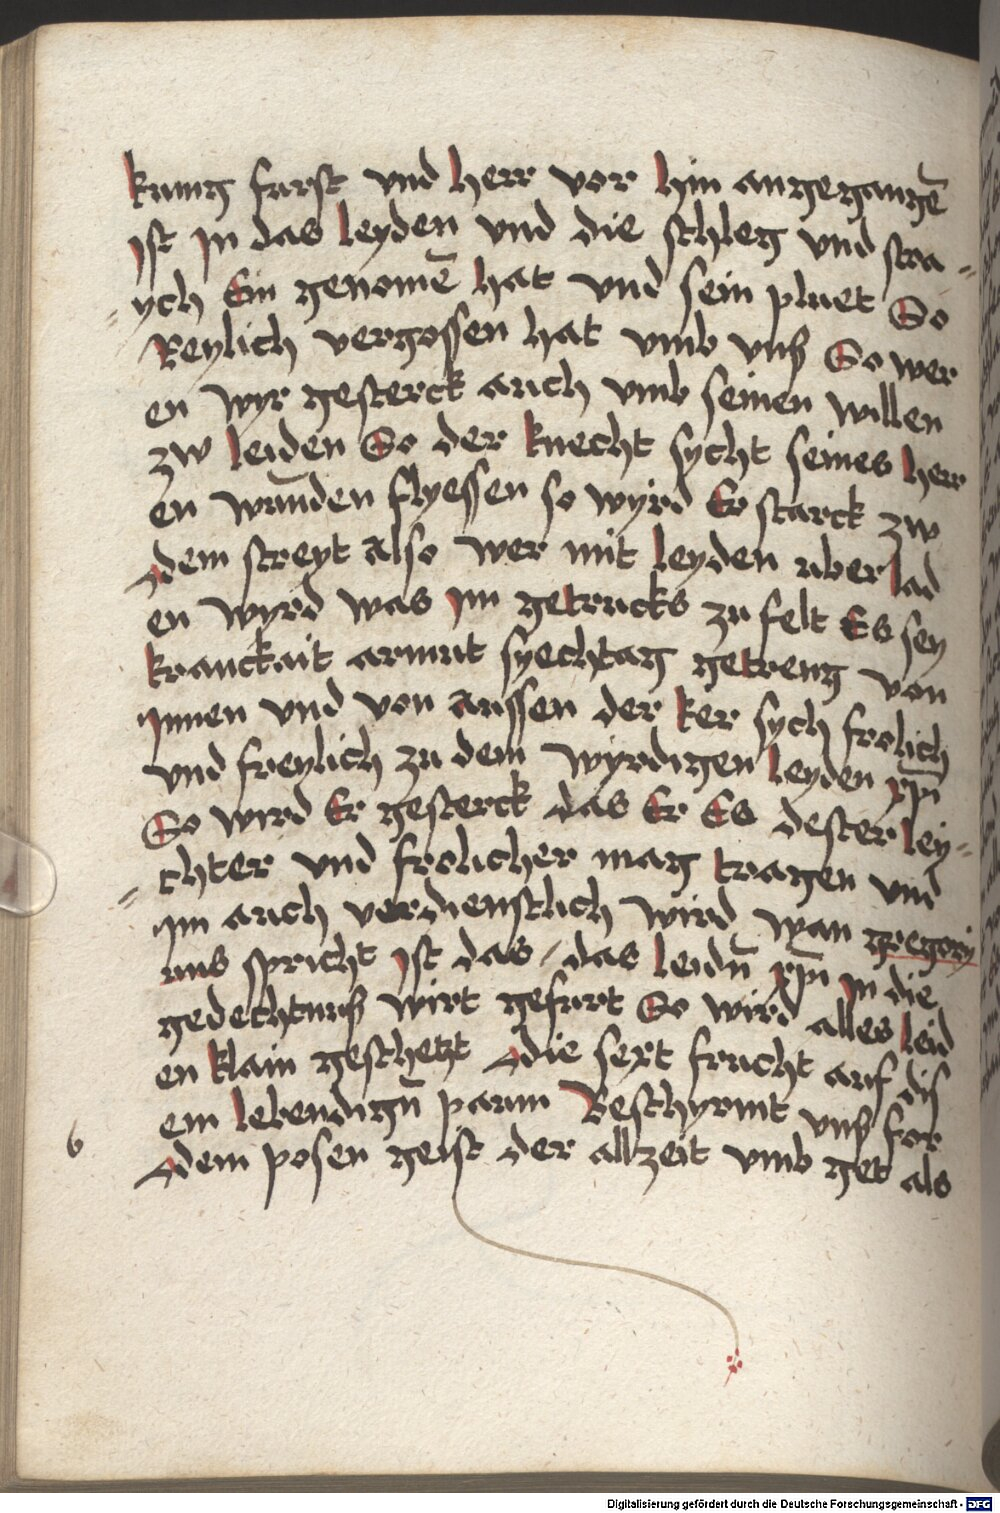 kunig furst vnd herr vor hin angegangē
ist jn das leyden vnd die schleg vnd stra-
ych Ein genomē hat vnd sein pluet So
Reylich vergossen hat vmb vnß So wer
en wyr gesterck auch vmb seinen willen
zw leiden So der knecht sycht seines herr
en wunden flyessen so wyrd Er starck zw
dem streyt also wer mit leyden uberlad
en wyrd was jm getrucks zu felt Es sey
kranckait armut syechtag getreng von
jnnen vnd von aussen der ker sych frolich
vnd freylich zu dem wyrdigen leyden xp̄i
So wird Er gesterck das Er Es dester ley-
chter vnd frolicher mag tragen vnd
jm auch verdienstlich wird wan gregory
uns spricht ist das / das leidn̄ xp̄i jn die
gedechtnuß wirt gefurt So wird alles leid
en klain geschetzt die sext frucht auf dis
em lebendign̄ paum Beschyrmt vnß for
6 dem posen geist der allzeit vmb get als
Digitalisierung gefördert durch die Deutsche Forschungsgemeinschaft - DFG